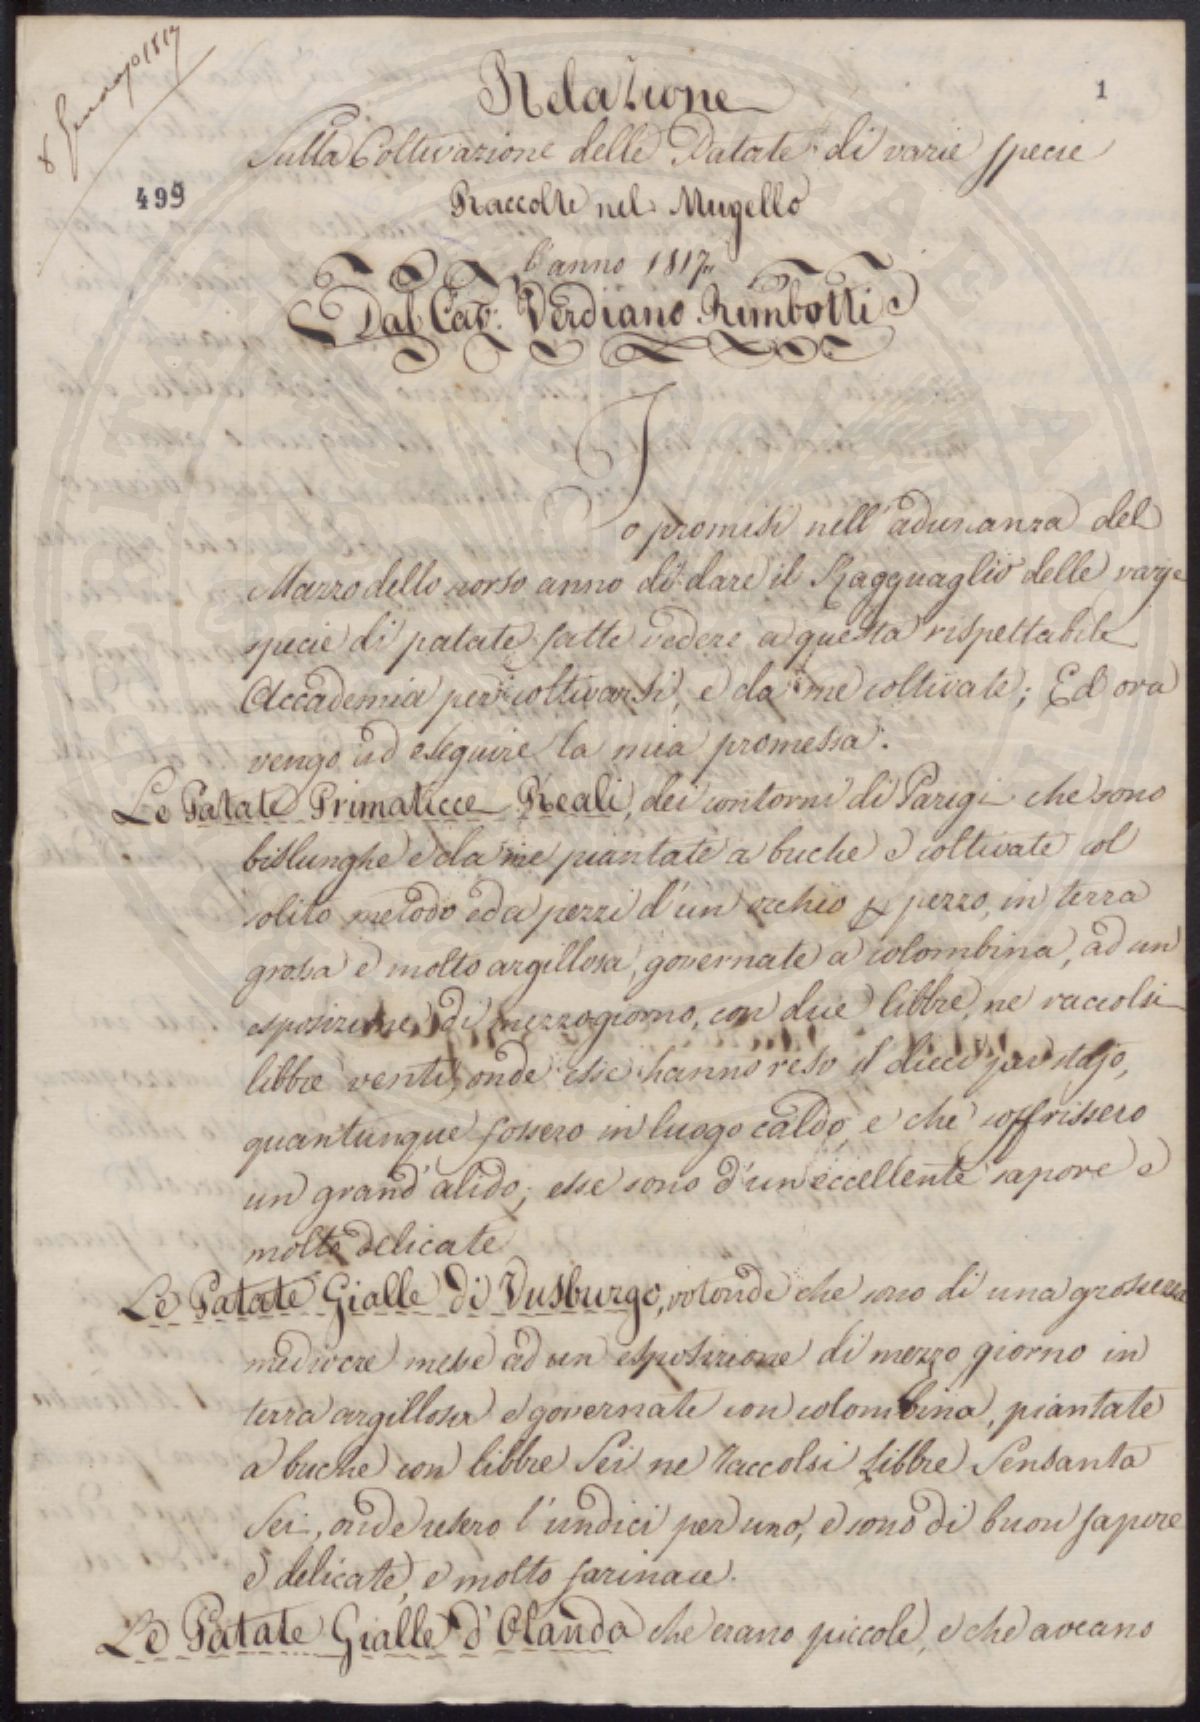 8 Gennajo 1817
1
Relazione
Sulla Coltivazione delle Patate di varie specie
499
Raccolte nel Mugello
l'anno 1817
Dal Cav: Verdiano Rimbotti
Io promisi nell'adunanza del
Marzo dello scorso anno di dare il Ragguaglio delle varie
specie di patate fatte vedere a questa rispettabile
Accademia per coltivarsi, e da me coltivate; Ed ora
vengo ad eseguire la mia promessa.
Le Patate Primaticce Reali, dei contorni di Parigi che sono
bislunghe e da me piantate a buche e coltivate col
solito metodo ed a pezzi d'un occhio p pezzo, in terra
grossa e molto argillosa, governate a colombina, ad un
esposizione di mezzogiorno, con due libbre, ne raccolsi
libbre venti, onde esse hanno reso il dieci per stajo,
quantunque fossero in luogo caldo, e che soffrissero
un grand'alido; esse sono d'un eccellente sapore e
molto delicate
Le Patate Gialle di Dusburgo, rotonde che sono di una grossezza
mediocre messe ad un esposizione di mezzo giorno in
terra argillosa e governate con colombina, piantate
a buche con libbre Sei ne raccolsi Libbre Sensanta
Sei, onde resero l'undici per uno, e sono di buon sapore
e delicate, e molto farinace.
Le Patate Gialle d'Olanda che erano piccole, e che aveano